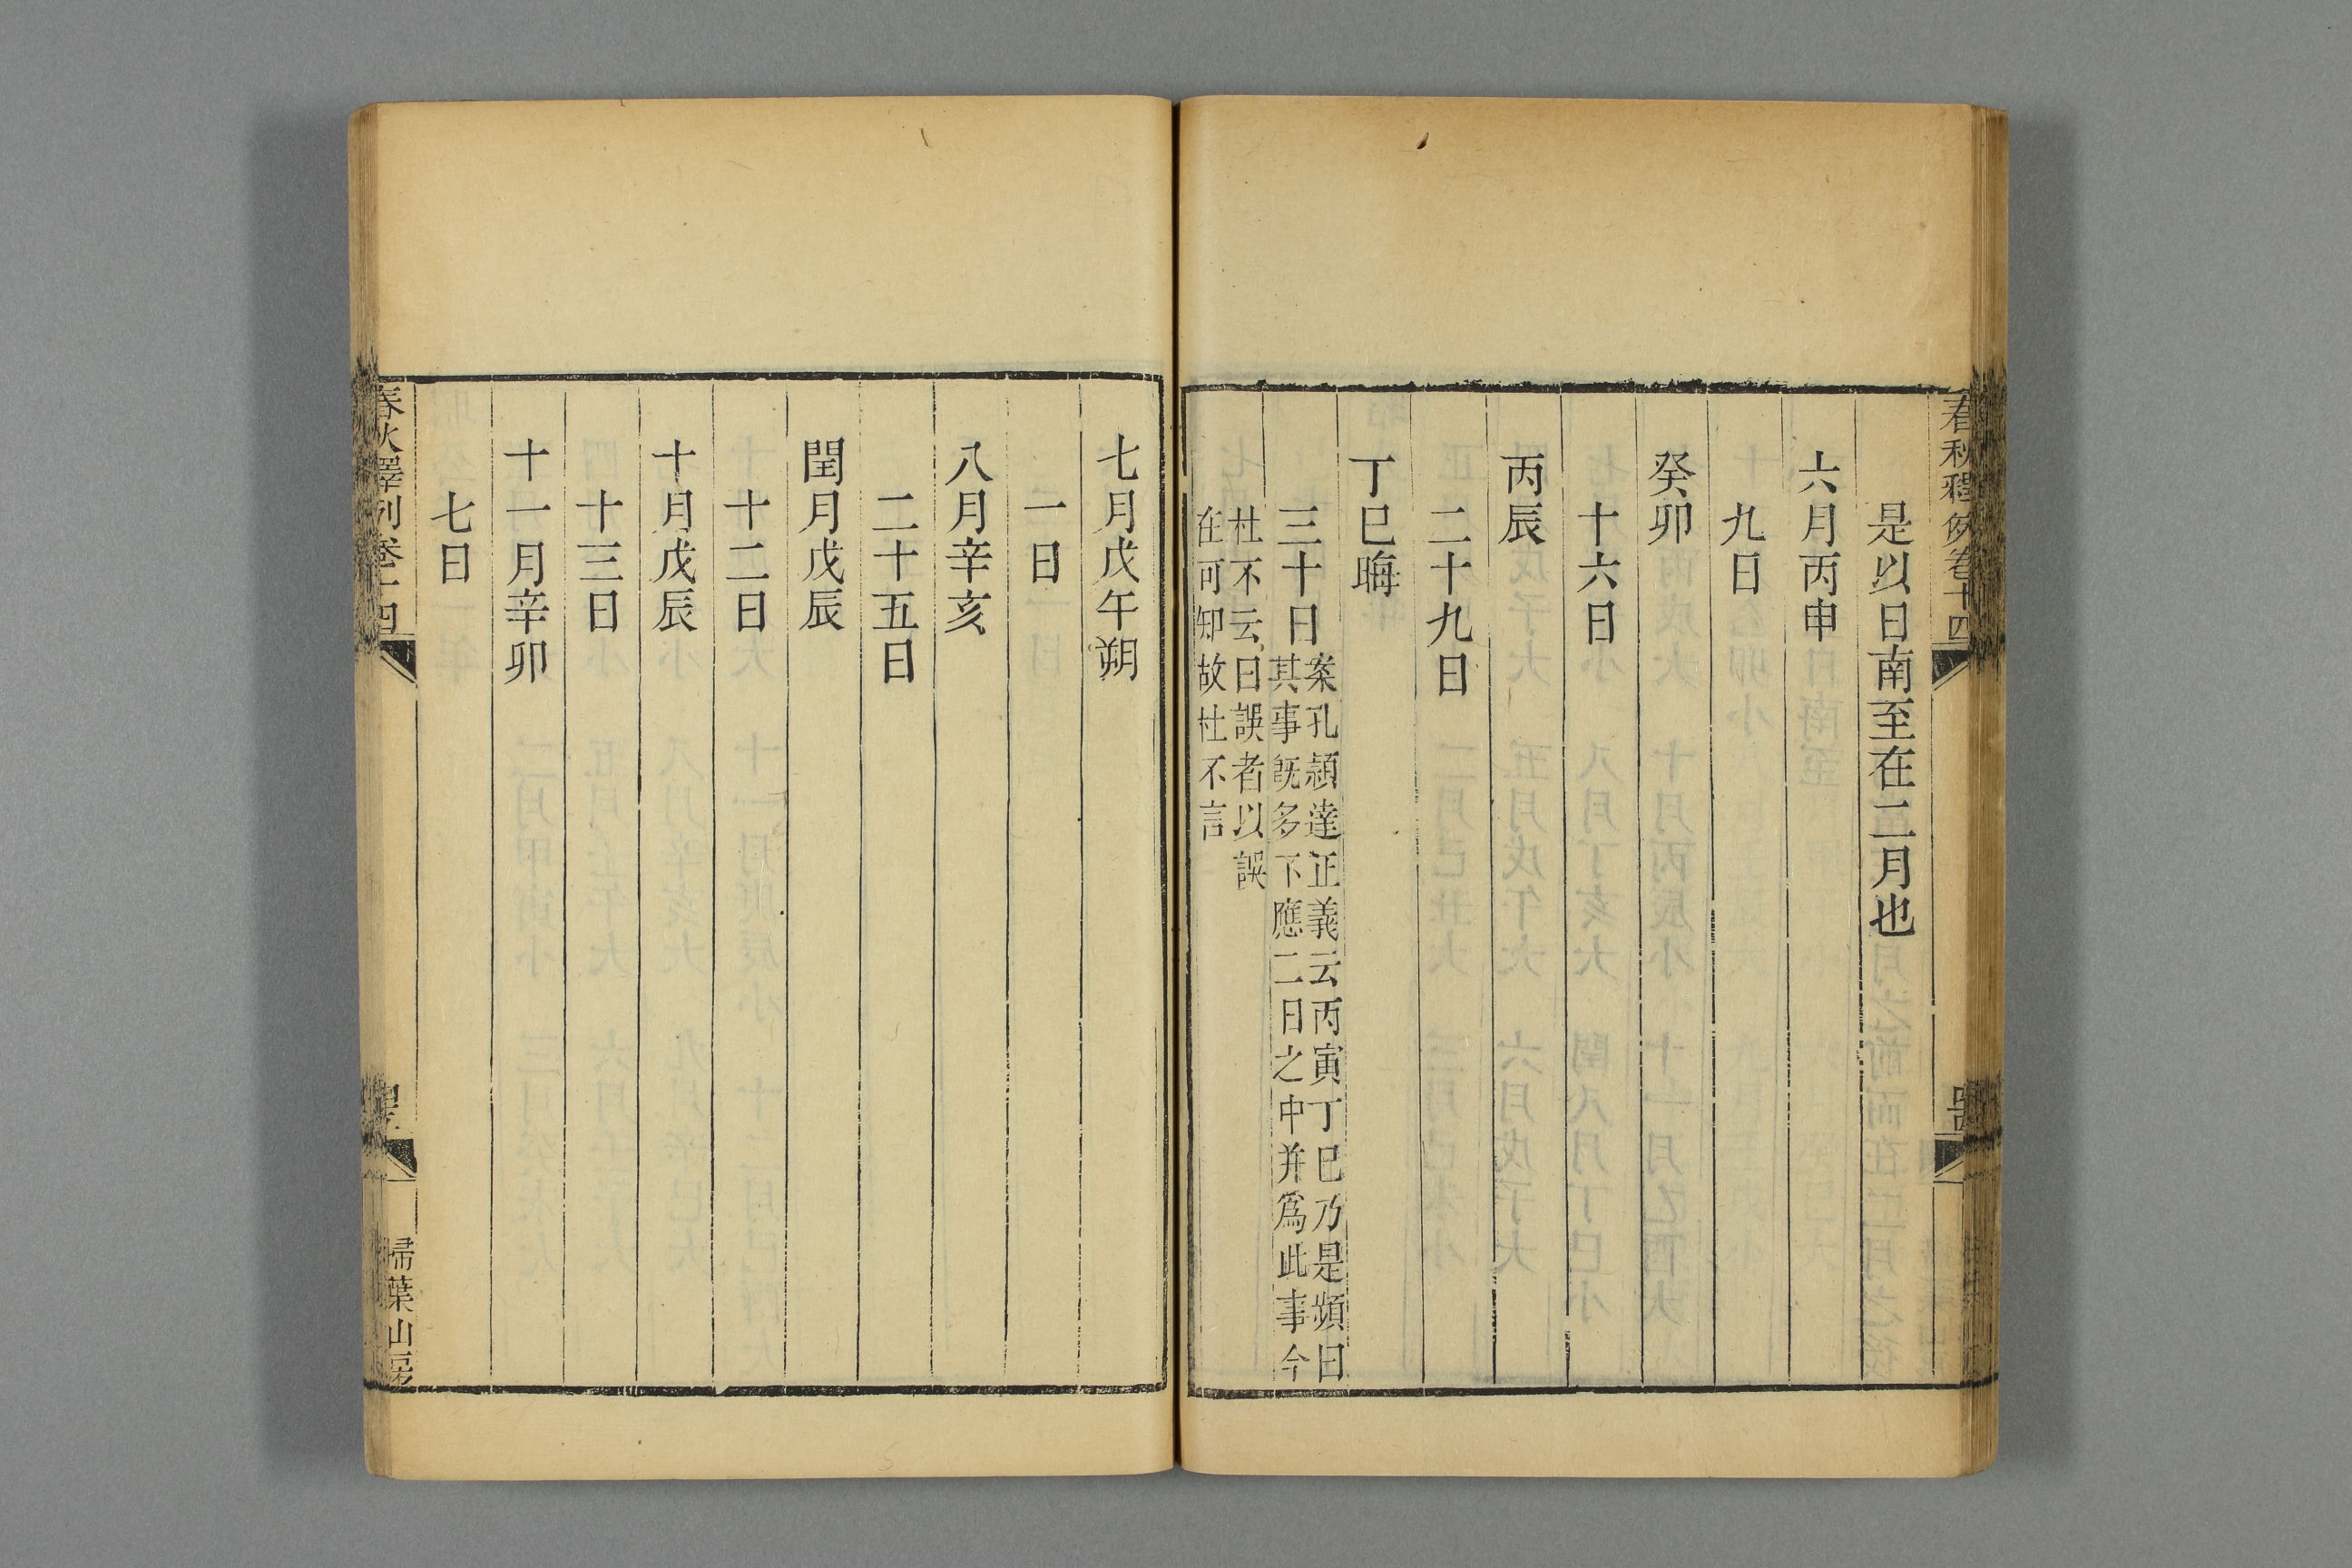 春秋釋例卷十四
是以日南至在二月也
六月丙申
九日
癸卯
十六日
丙辰
二十九日
丁巳晦
三十日
案孔頴達正義云丙寅丁巳乃是頻日
其事旣多不應二日之中并爲此事今
杜不云日誤者以誤
在可知故杜不言
七月戊午朔
一日
八月辛亥
二十五日
閏月戊辰
十二日
十月戊辰
十三日
十一月辛卯
七日
春秋釋例卷十四
掃葉山房